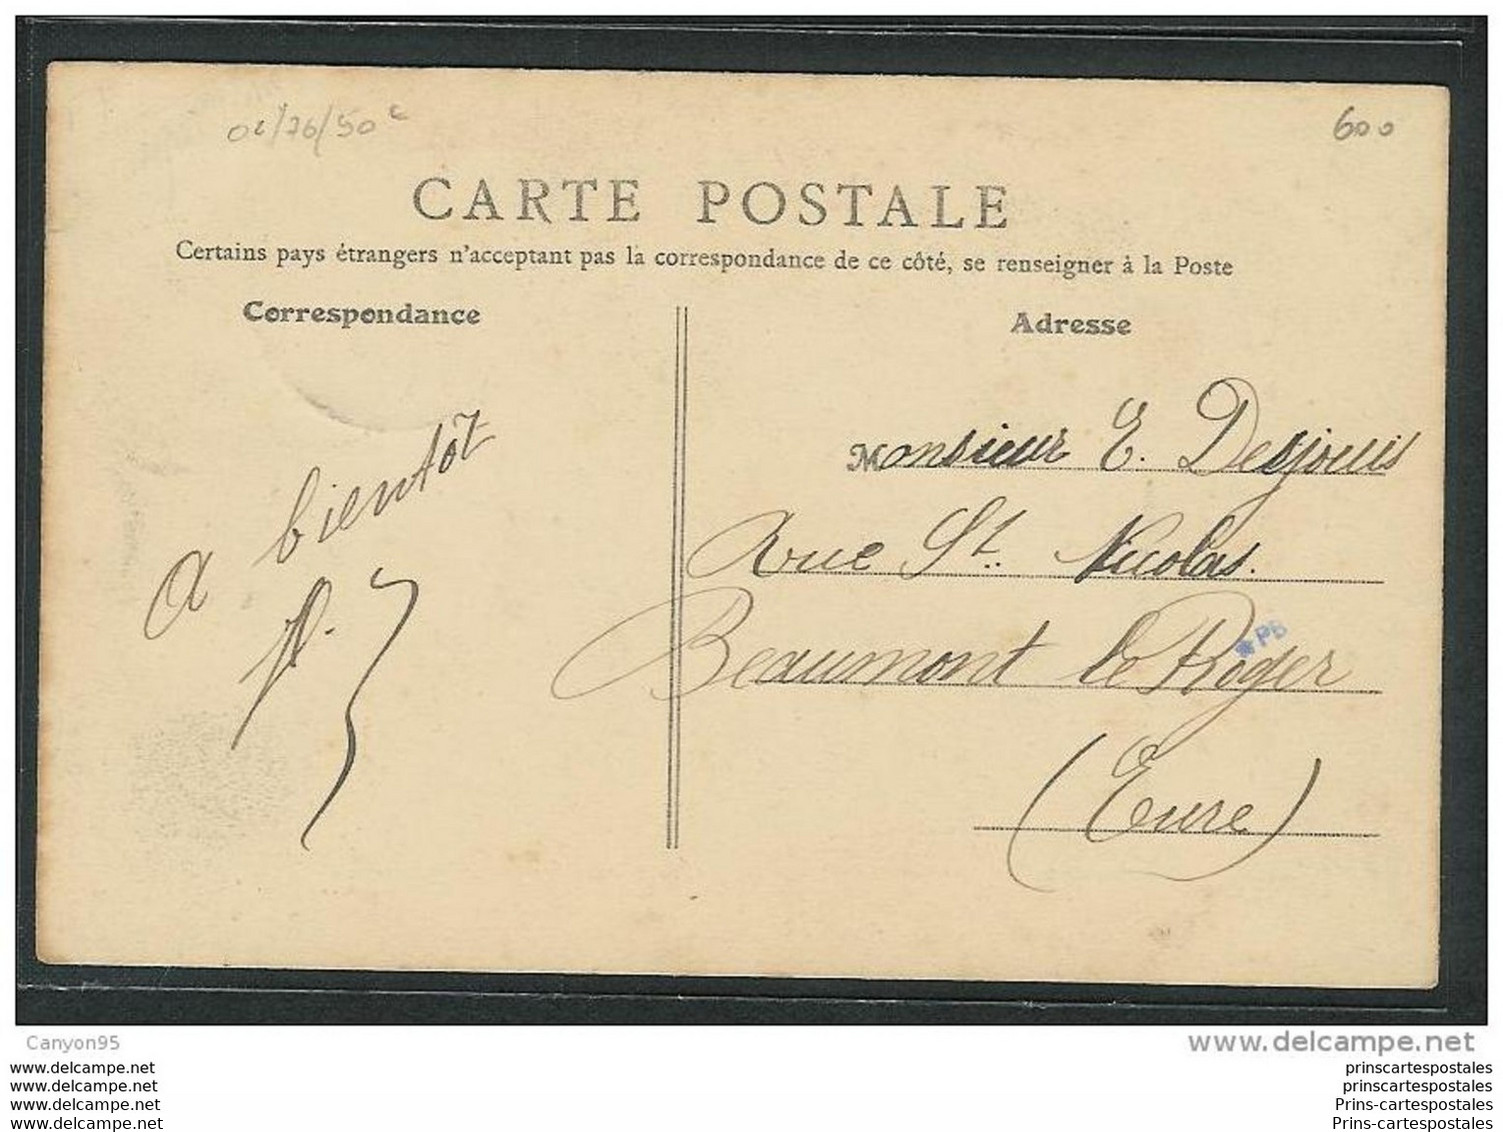 600
CARTE POSTALE
Certains pays étrangers n'acceptant pas la correspondance de ce côté, se renseigner à la Poste
Correspondance
A bientôt
Adresse
Monsieur E. Desjouis
Rue St. Nicolas.
Beaumont le Roger
*PB
(Eure)
Canyon95
www.delcampe.net
www.delcampe.net
www.delcampe.net
www.delcampe.net
www.delcampe.net
prinscartespostales
prinscartespostales
Prins-cartespostales
Prins-cartespostales